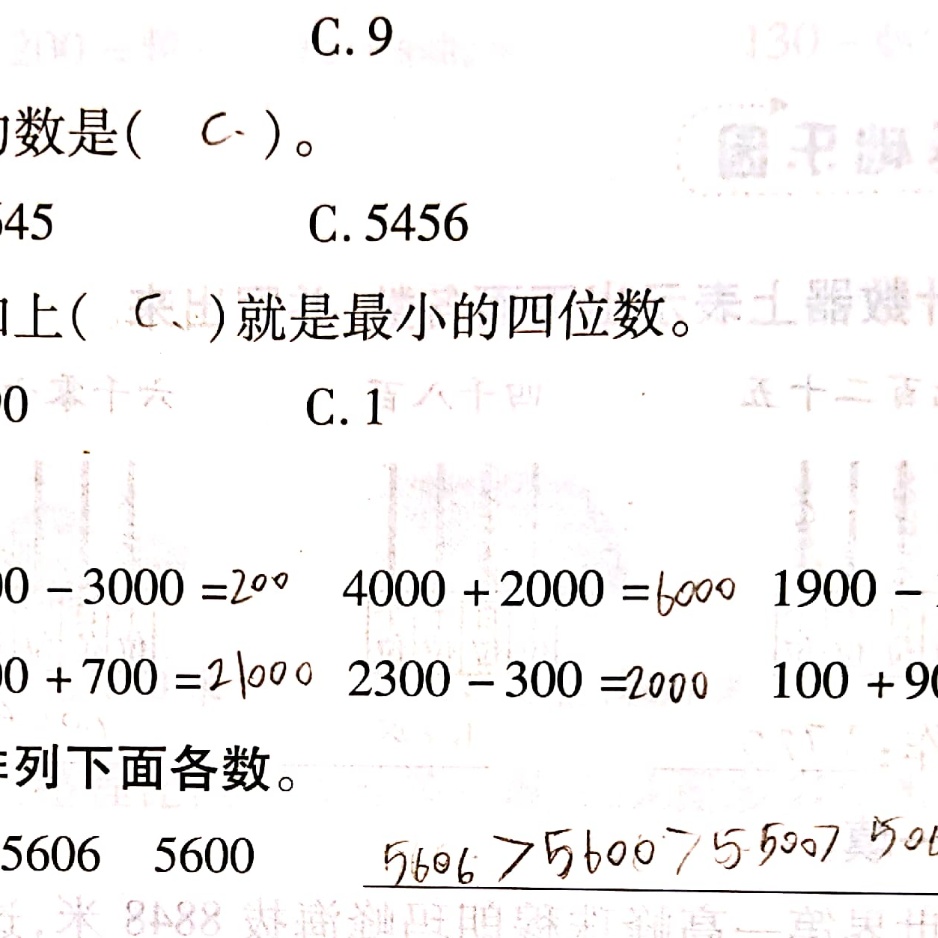 C. 9
数是( C. )。
45 C. 5456
上( C、)就是最小的四位数。
0 C. 1
0 - 3000 =200 4000 + 2000 =6000 1900 -
0 + 700 =21000 2300 - 300 =2000 100 + 90
列下面各数。
5606 5600 5606 > 5600 > 5500 > 506